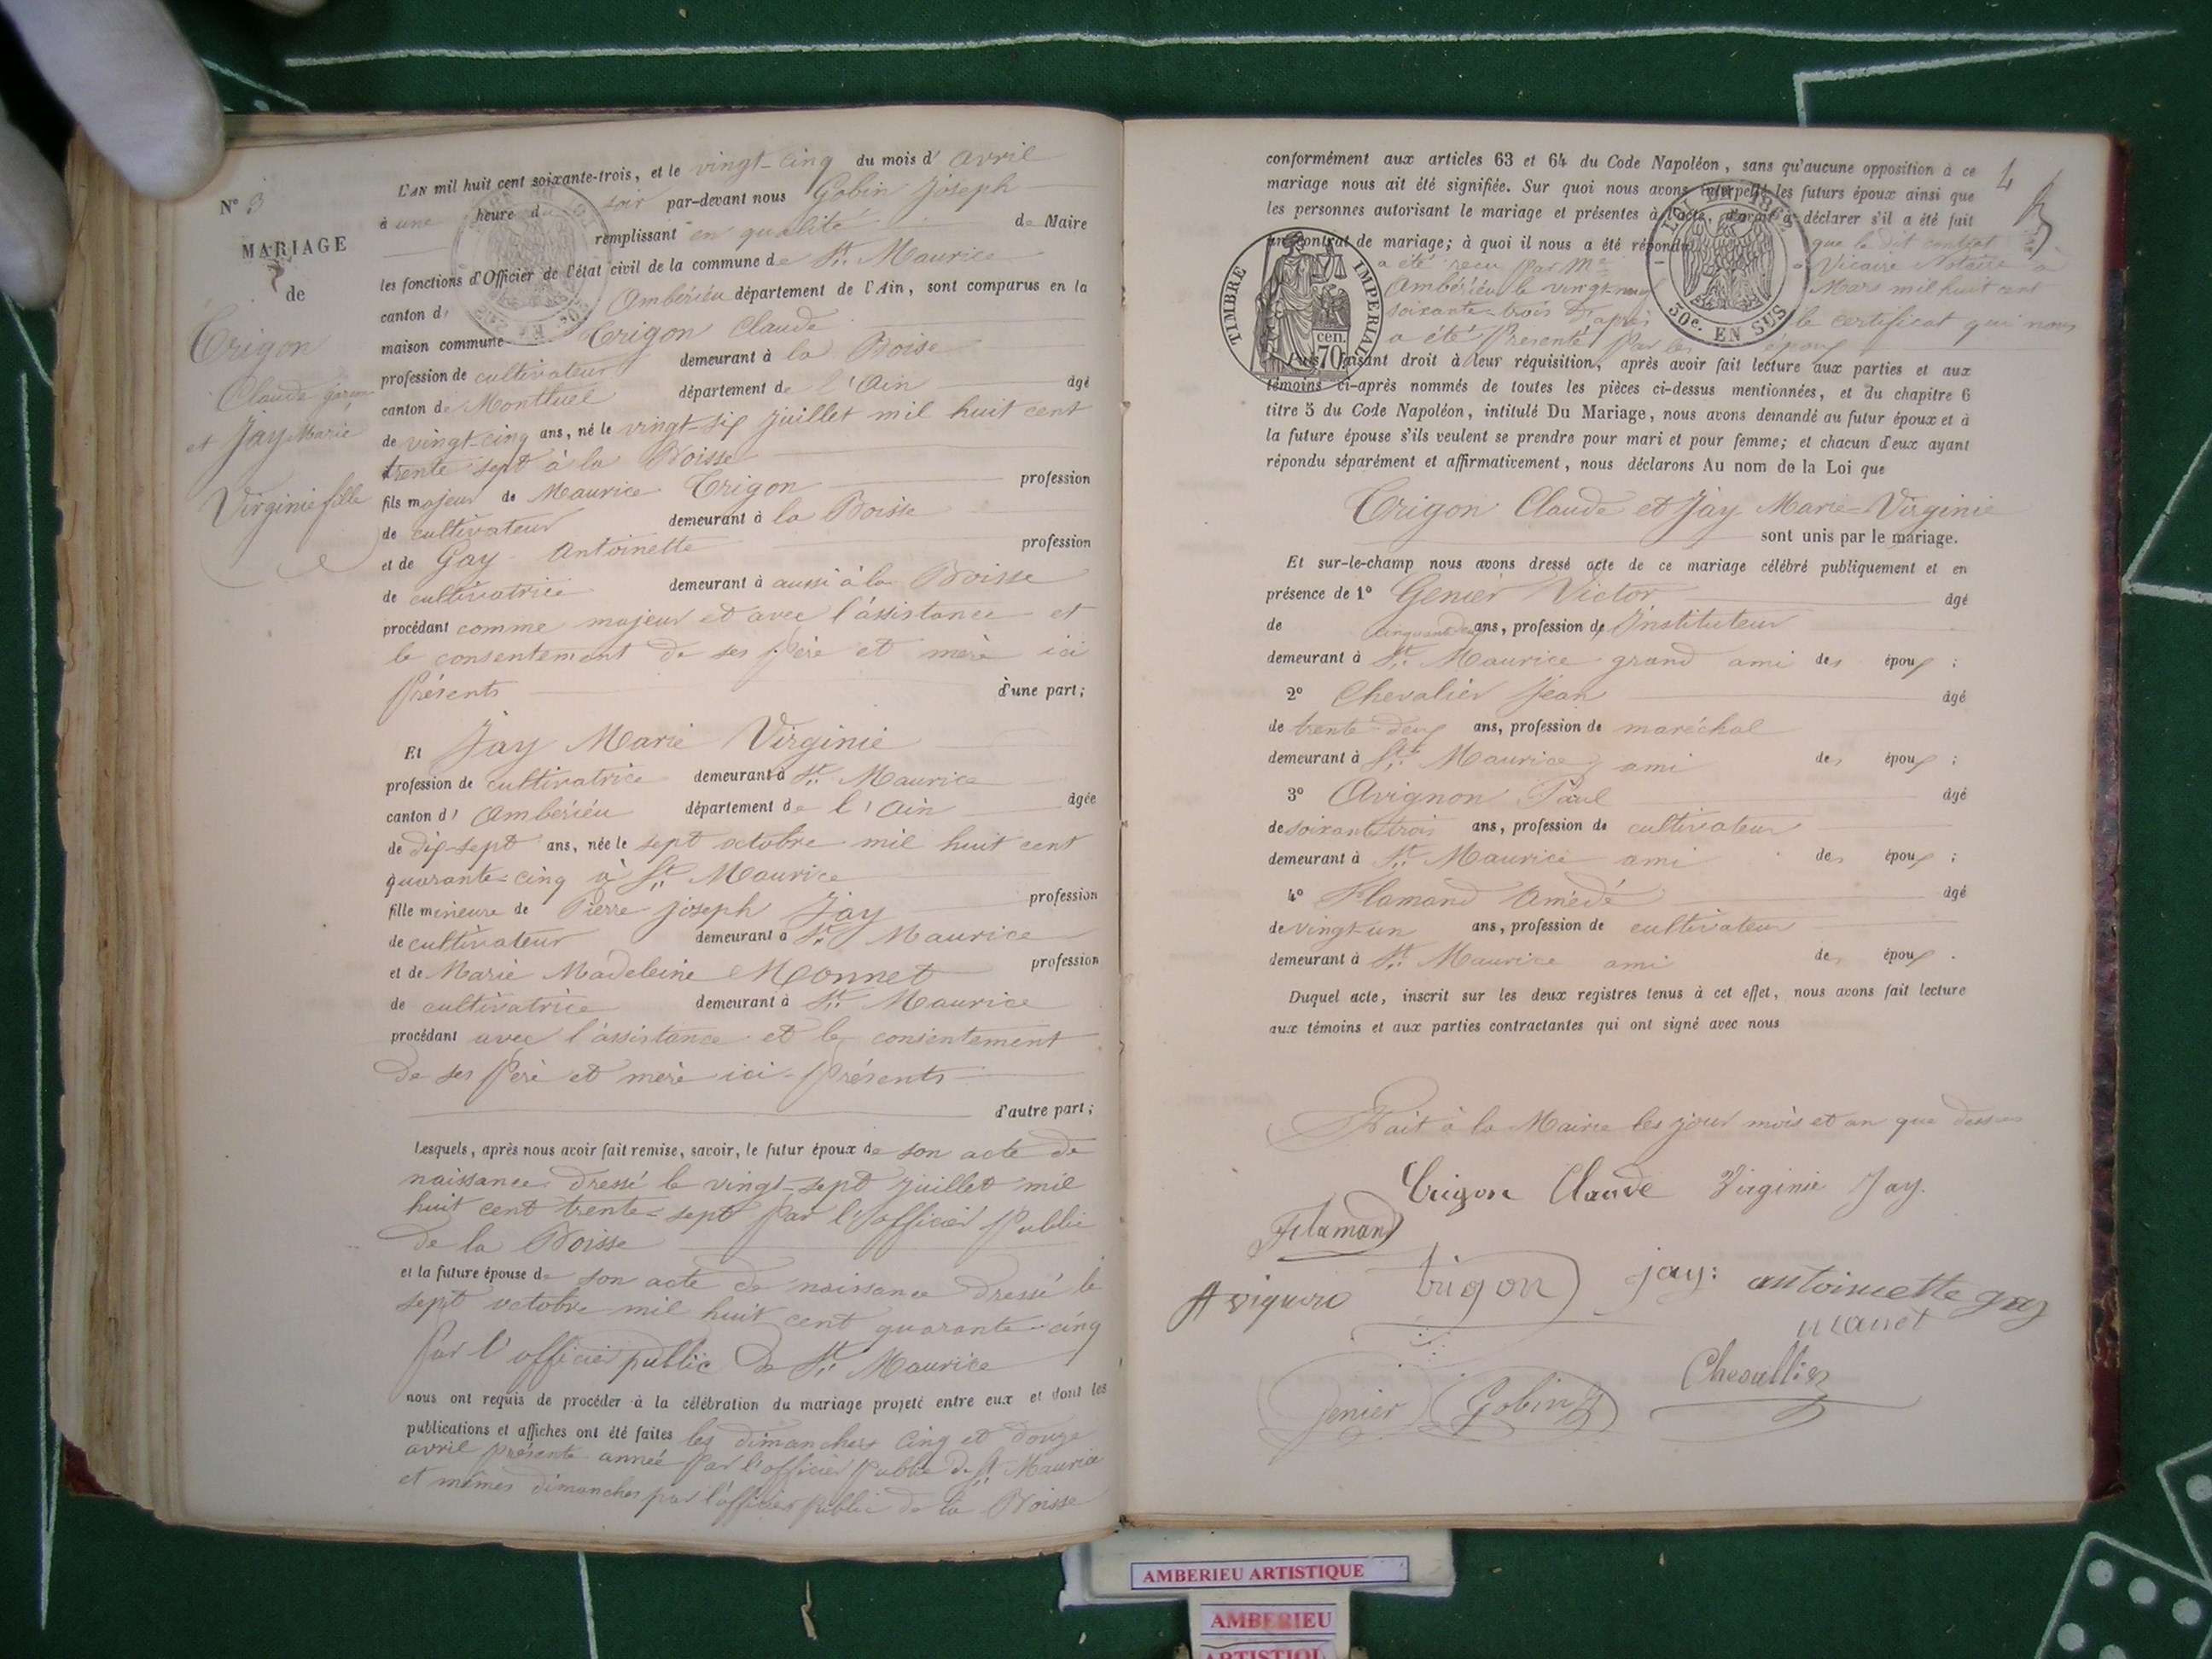 N° 3
MARIAGE
de
Trigon
Claude garçon
et Jay Marie
Virginie fille
L'AN mil huit cent soixante-trois, et le vingt-cinq du mois d' avril
à une heure du soir par-devant nous Gobin Joseph
remplissant en qualité de Maire
les fonctions d'Officier de l'état civil de la commune de St. Maurice
canton d' Ambérieu département de l'Ain, sont comparus en la
maison commune Trigon Claude
profession de cultivateur demeurant à la Boisse
canton de Montluel département de l'Ain âgé
de vingt-cinq ans, né le vingt-six juillet mil huit cent
trente sept à la Boisse
fils majeur de Maurice Trigon profession
de cultivateur demeurant à la Boisse
et de Gay Antoinette profession
de cultivatrice demeurant à aussi à la Boisse
procédant comme majeur et avec l'assistance et
le consentement de ses père et mère ici
présents d'une part;
Et Jay Marie Virginie
profession de cultivatrice demeurant à St. Maurice
canton d' Ambérieu département de l'Ain âgée
de dix-sept ans, née le sept octobre mil huit cent
quarante-cinq à St. Maurice
fille mineure de Pierre Joseph Jay profession
de cultivateur demeurant à St. Maurice
et de Marie Madeleine Monnet profession
de cultivatrice demeurant à St. Maurice
procédant avec l'assistance et le consentement
de ses père et mère ici présents
d'autre part;
Lesquels, après nous avoir fait remise, savoir, le futur époux de son acte de
naissance dressé le vingt-sept juillet mil
huit cent trente-sept par l'officier public
de la Boisse
et la future épouse de son acte de naissance dressé le
sept octobre mil huit cent quarante-cinq
par l'officier public de St. Maurice
nous ont requis de procéder à la célébration du mariage projeté entre eux et dont les
publications et affiches ont été faites les dimanches cinq et douze
avril présente année par l'officier public de St. Maurice
et mêmes dimanches par l'officier public de la Boisse
4
conformément aux articles 63 et 64 du Code Napoléon, sans qu'aucune opposition à ce
mariage nous ait été signifiée. Sur quoi nous avons interpellé les futurs époux ainsi que
les personnes autorisant le mariage et présentes à l'acte, d'avoir à déclarer s'il a été fait
un contrat de mariage; à quoi il nous a été répondu que le dit contrat
a été reçu par Me Vicaire Notaire à
Ambérieu le vingt-neuf Mars mil huit cent
soixante-trois d'après le certificat qui nous
a été présenté par les époux
TIMBRE IMPERIAL
70 cen.
LOI DE 1862
30c. EN SUS
Puis faisant droit à leur réquisition, après avoir fait lecture aux parties et aux
témoins ci-après nommés de toutes les pièces ci-dessus mentionnées, et du chapitre 6
titre 5 du Code Napoléon, intitulé Du Mariage, nous avons demandé au futur époux et à
la future épouse s'ils veulent se prendre pour mari et pour femme; et chacun d'eux ayant
répondu séparément et affirmativement, nous déclarons Au nom de la Loi que
Trigon Claude et Jay Marie-Virginie
sont unis par le mariage.
Et sur-le-champ nous avons dressé acte de ce mariage célébré publiquement et en
présence de 1° Genier Victor âgé
de ans, profession de Instituteur
demeurant à St. Maurice grand ami des époux ;
2° Chevalier Jean âgé
de trente-deux ans, profession de maréchal
demeurant à St. Maurice ami des époux ;
3° Avignon Paul âgé
de soixante trois ans, profession de cultivateur
demeurant à St. Maurice ami des époux ;
4° Flamand Amédé âgé
de vingt-un ans, profession de cultivateur
demeurant à St. Maurice ami des époux .
Duquel acte, inscrit sur les deux registres tenus à cet effet, nous avons fait lecture
aux témoins et aux parties contractantes qui ont signé avec nous
Fait à la Mairie les jour mois et an que dessus
Trigon Claude Virginie Jay.
Flamand
trigon jay: antoinette gay
Genier Gobin Chevallier
AMBERIEU ARTISTIQUE
AMBERIEU
ARTISTIQUE